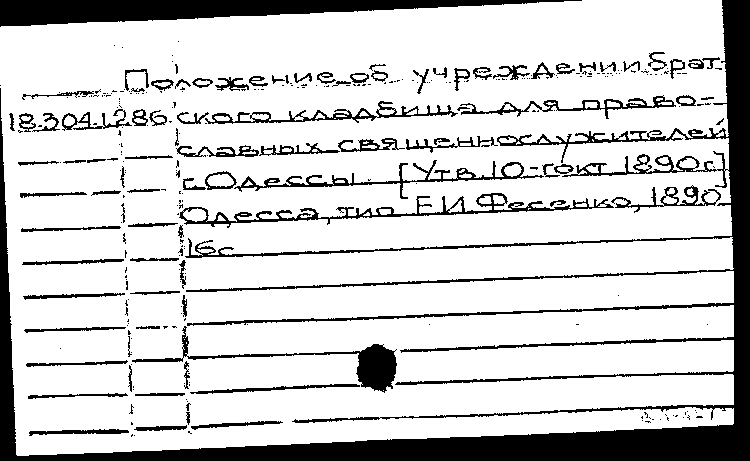 Положение об учреждении Брат-
18.304.1.286. ского кладбища для право-
славных священнослужителей
г. Одессы. [Утв. 10-го окт 1890 г.]
Одесса, тип Е.И. Фесенко, 1890
16с